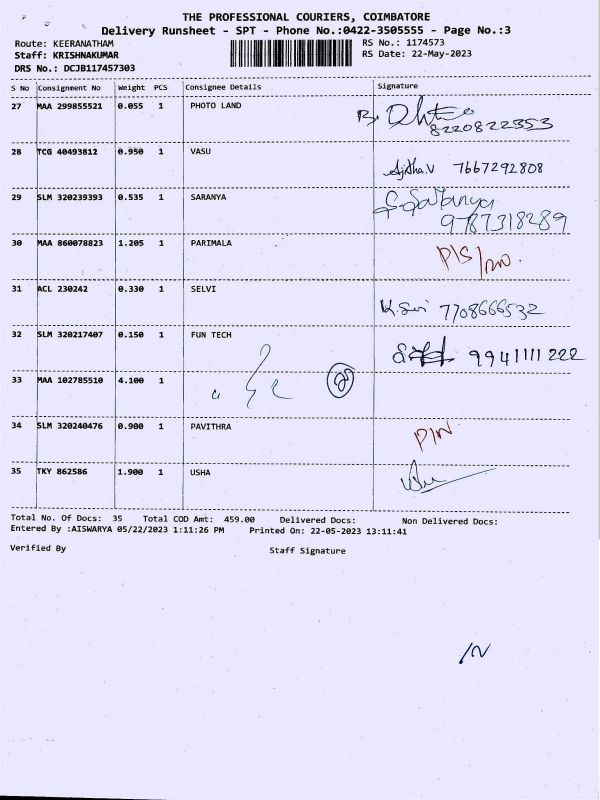 THE PROFESSIONAL COURIERS, COIMBATORE
Delivery Runsheet - SPT - Phone No.:0422-3505555 - Page No.:3
Route: KEERANATHAM RS No.: 1174573
Staff: KRISHNAKUMAR RS Date: 22-May-2023
DRS No.: DCJB117457303
S No Consignment No Weight PCS Consignee Details Signature
27 MAA 299855521 0.055 1 PHOTO LAND
8220822353
28 TCG 40493812 0.950 1 VASU
Ajitha.V 7667292808
29 SLM 320239393 0.535 1 SARANYA
9787318289
30 MAA 860078823 1.205 1 PARIMALA
31 ACL 230242 0.330 1 SELVI
7708666532
32 SLM 320217407 0.150 1 FUN TECH
9941111222
33 MAA 102785510 4.100 1
34 SLM 320240476 0.900 1 PAVITHRA
35 TKY 862586 1.900 1 USHA
Total No. Of Docs: 35 Total COD Amt: 459.00 Delivered Docs: Non Delivered Docs:
Entered By :AISWARYA 05/22/2023 1:11:26 PM Printed On: 22-05-2023 13:11:41
Verified By Staff Signature